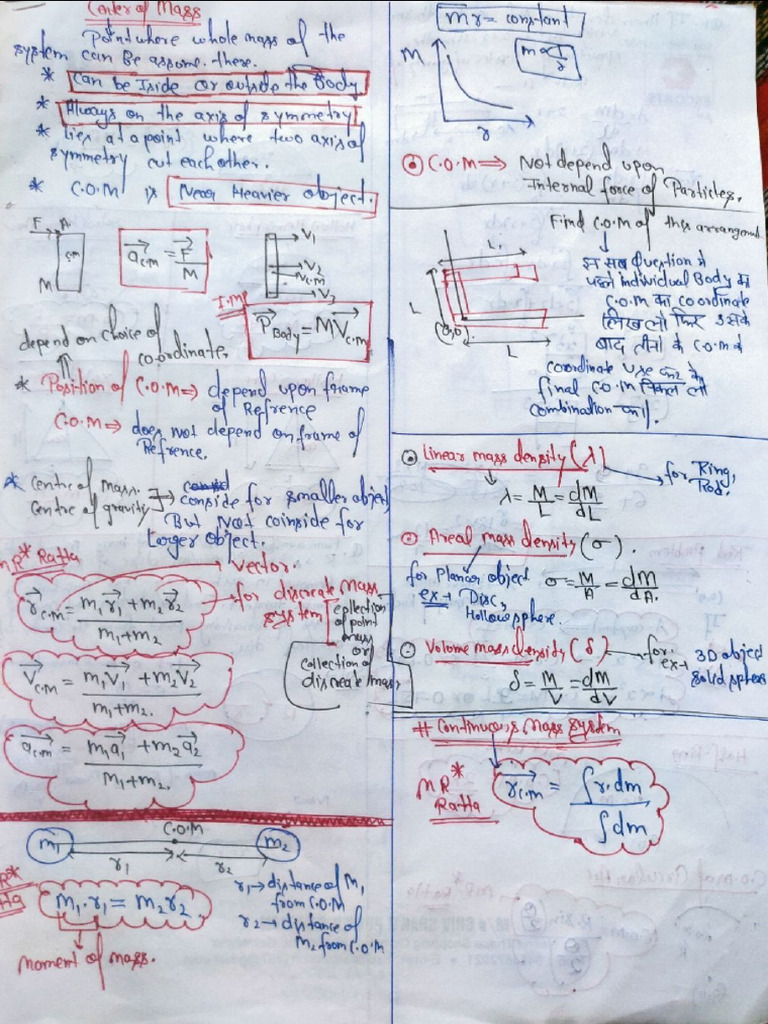 Center of Mass
Point where whole mass of the
system can Be assume there.
* Can be Iside or outside the Body
* Always on the axis of symmetry
* lies at a point where two axis of
symmetry cut each other.
* C.O.M is Near Heavier object.
F A
cm
M
a⃗c.m = F⃗/M
V1
V2
Vc.m
V3
I.M.P
P⃗Body = MV⃗c.m
depend on choice of
coordinates
* Position of C.O.M ⇒ depend upon frame
of Refrence
C.O.M ⇒ does not depend on frame of
Refrence.
* Centre of mass.
Centre of gravity
conside for smaller object
But Not coinside for
Larger object.
MR* Ratta
Vector.
r⃗c.m = (m1r⃗1 + m2r⃗2)/(m1+m2)
for discreate Mass
system
collection
of point
mass
or
collection of
discreate mass
V⃗c.m = (m1V⃗1 + m2V⃗2)/(m1+m2.)
a⃗c.m = (m1a⃗1 + m2a⃗2)/(m1+m2.)
C.O.M
m1 m2
r1 r2
r1 → distance of M1
from C.O.M
r2 → distance of
M2 from C.O.M
m1.r1 = m2r2
Moment of mass.
mr = constant
m ∝ 1/r
M
r
C.O.M ⇒ Not depend upon
Internal force of Particles.
Find C.O.M of this arrangment
L
L
(0,0)
L
इन सब Question मे
पहले individual Body का
C.O.M का coordinate
लिख लो फिर उसके
बाद तीनो के C.O.M के
coordinate use कर के
final C.O.M निकाल लो
combination का।
Linear mass density (λ)
for Ring,
Rod.
λ = M/L = dM/dL
Areal mass density (σ).
for Planar object
ex → Disc,
Hollow sphere.
σ = M/A = dm/dA.
Volume mass density (δ)
for 3D object
ex → solid sphere
δ = M/V = dm/dV
# Continuous Mass system
MR*
Ratta
r⃗c.m = ∫r.dm/∫dm